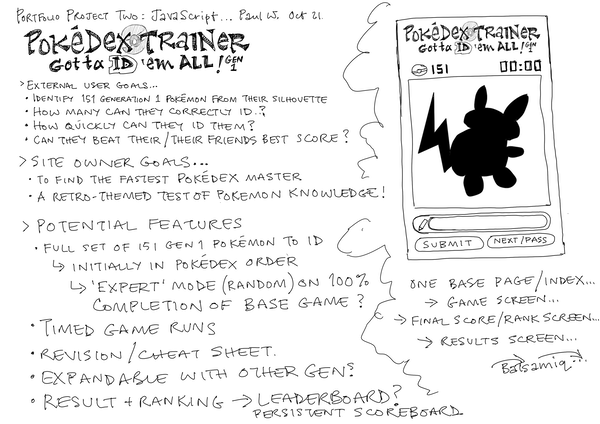 PORTFOLIO PROJECT TWO: JAVASCRIPT... PAUL W. OCT 21.
POKÉDEX TRAINER
GOTTA ID 'EM ALL! GEN 1
> EXTERNAL USER GOALS...
• IDENTIFY 151 GENERATION 1 POKÉMON FROM THEIR SILHOUETTE
• HOW MANY CAN THEY CORRECTLY ID..?
• HOW QUICKLY CAN THEY ID THEM?
• CAN THEY BEAT THEIR/THEIR FRIENDS BEST SCORE?
> SITE OWNER GOALS...
• TO FIND THE FASTEST POKÉDEX MASTER
• A RETRO-THEMED TEST OF POKEMON KNOWLEDGE!
> POTENTIAL FEATURES
• FULL SET OF 151 GEN 1 POKÉMON TO ID
↳ INITIALLY IN POKÉDEX ORDER
↳ 'EXPERT' MODE (RANDOM) ON 100%
COMPLETION OF BASE GAME?
• TIMED GAME RUNS
• REVISION/CHEAT SHEET.
• EXPANDABLE WITH OTHER GENS?
• RESULT + RANKING → LEADERBOARD?
PERSISTENT SCOREBOARD
POKÉDEX TRAINER
GOTTA ID 'EM ALL! GEN 1
151 00:00
SUBMIT NEXT/PASS
ONE BASE PAGE/INDEX...
→ GAME SCREEN...
→ FINAL SCORE/RANK SCREEN...
→ RESULTS SCREEN...
Balsamiq...